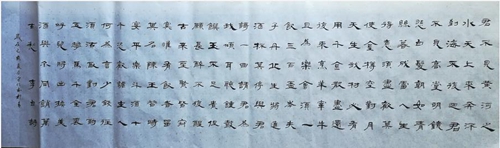 君不見黃河之
水天上來奔流
到海不復回君
不見高堂明鏡
悲白髮朝如青
絲暮成雪人生
得意須盡歡莫
使金樽空對月
天生我材必有
用千金散盡還
復來烹羊宰牛
且為樂會須一
飲三百杯岑夫
子丹丘生將進
酒杯莫停與君
歌一曲請君為
我傾耳聽鐘鼓
饌玉不足貴但
願長醉不復醒
古來聖賢皆寂
寞惟有飲者留
其名陳王昔時
宴平樂斗酒十
千恣歡謔主人
何為言少錢徑
須沽取對君酌
五花馬千金裘
呼兒將出換美
酒與爾同銷萬
古愁 李白詩